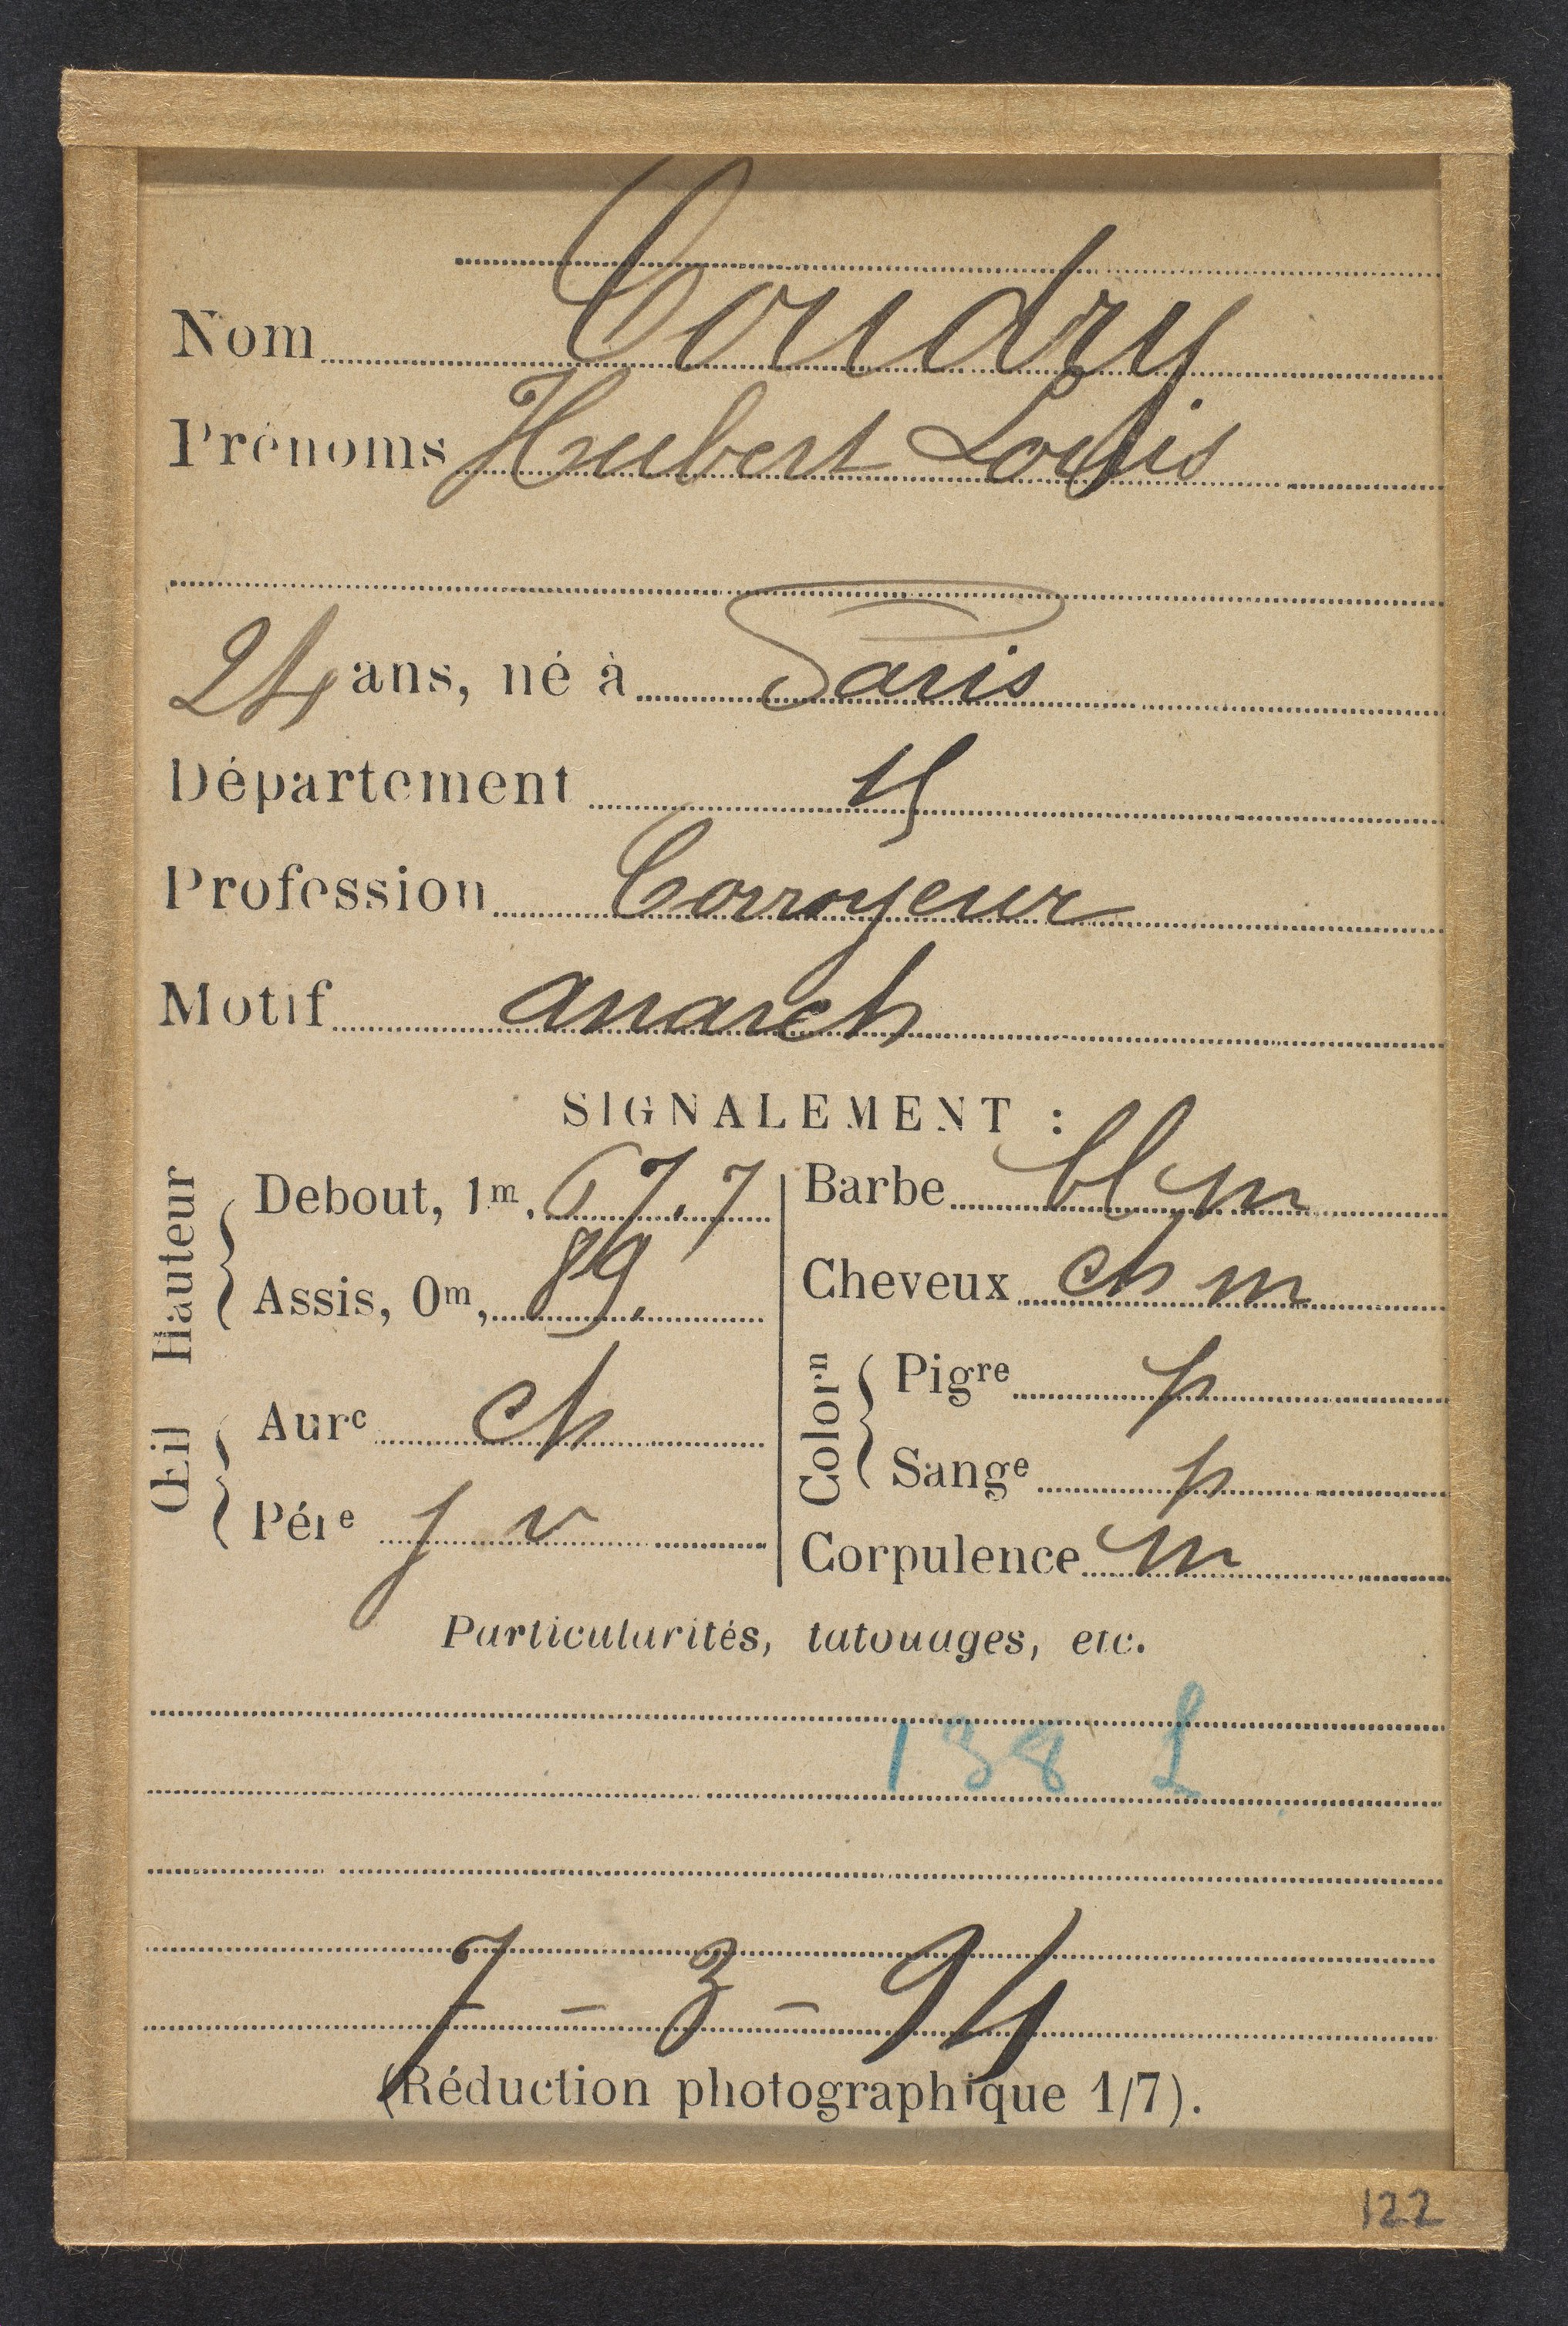 Nom Coudry
Prénoms Hubert Louis
24 ans, né à Paris
Département
Profession Corroyeur
Motif anarch
SIGNALEMENT :
Hauteur
Debout, 1m, 67.7
Assis, 0m, 89.
Œil
Aure ch
Pére j v
Barbe bl m
Cheveux ch m
Colorn
Pigre p
Sange p
Corpulence m
Particularités, tatouages, etc.
138 L
7 - 3 - 94
(Réduction photographique 1/7).
122